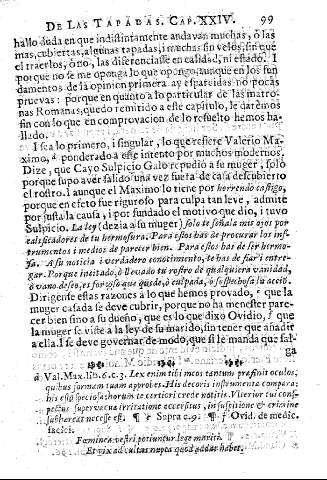 DE LAS TAPADAS. CAP. XXIV. 99
hallo duda en que indistintamente andavan muchas, ò las
mas, cubiertas, algunas tapadas, i muchas sin velos, sin que
el traerlos, ò no, las diferenciasse en calidad, ni estado. I
porque no se me oponga lo que opongo, aunque en los fun
damentos de la opinion primera ay esparcidas no pocas
pruevas: porque en quanto a lo particular de las matro-
nas Romanas, quedo remitido a este capitulo, le daremos
fin con lo que en comprovacion de lo resuelto hemos ha-
llado.
I sea lo primero, i singular, lo que refiere Valerio Ma-
ximo, a ponderado a este intento por muchos modernos.
Dize, que Cayo Sulpicio Galo repudiò a su muger, solo
porque supo aver salido una vez fuera de casa descubierto
el rostro. I aunque el Maximo lo tiene por horrendo castigo,
porque en efeto fue riguroso para culpa tan leve, admite
por justa la causa, i por fundado el motivo que dio, i tuvo
Sulpicio. La ley (dezia a su muger) solo te señala mis ojos por
calificadores de tu hermosura. Para estos has de procurar los ins-
trumentos i medios de parecer bien. Para estos has de ser hermo-
sa. A su noticia i verdadero conocimiento, te has de fiar i entre-
gar. Porque incitado, ò llevado tu rostro de qualquiera vanidad,
ò vano deseo, es forzoso que quede, ò culpada, ò sospechosa su acciõ.
Dirigense estas razones a lo que hemos provado, que la
muger casada se deve cubrir, porque no ha menester pare-
cer bien sino a su dueño, que es lo que dixo Ovidio, que
la muger se viste a la ley de su marido, sin tener que añadir
a ella. I se deve governar de modo, que si le manda que sal-
ga
a Val. Max. lib. 6. c. 3. Lex enim tibi meos tantum præfinit oculos,
quibus formam tuam approbes. His decoris instrumenta compara:
his esto speciosa: horum te certiori crede notitiæ. Ulterior tui cons-
pectus supervacua irritatione accersitus, in suspitione & crimine
subhæreat necesse est. ¶ Supra c. 9. ¶ Ovid. de medic.
faciei.
Fœminea vestri potiuntur lege mariti.
Et vix ad cultus nupta quod addat habet.